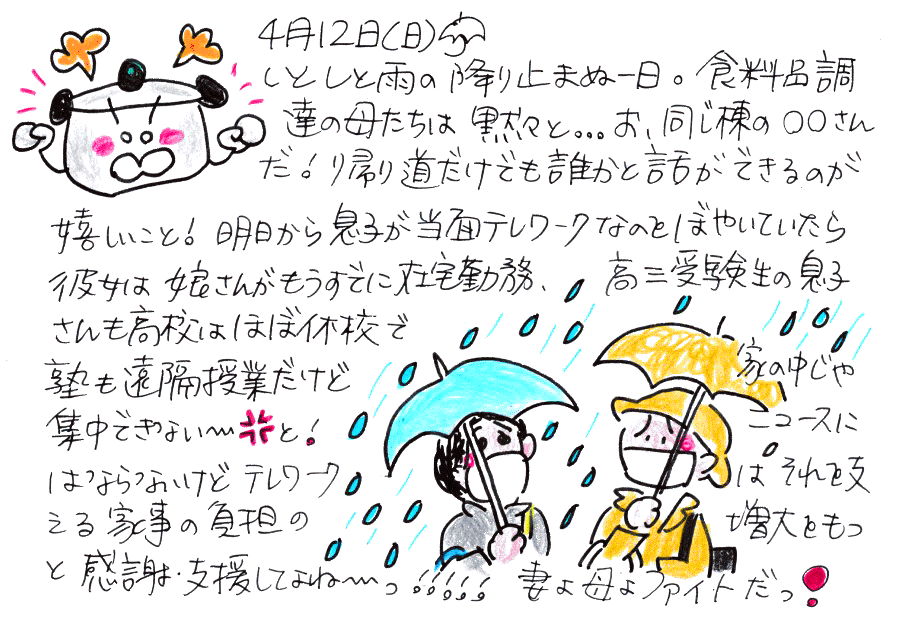 4月12日(日)
しとしと雨の降り止まぬ一日。食料品調
達の母たちは黙々と…お、同じ棟の〇〇さん
だ!帰り道だけでも誰かと話ができるのが
嬉しいこと!明日から息子が当面テレワークなのをぼやいていたら
彼女は娘さんがもうすでに在宅勤務、高三受験生の息子
さんも高校はほぼ休校で
塾も遠隔授業だけど家の中じゃ
集中できない〜と!ニュースに
はならないけどテレワークはそれを支
える家事の負担の増大をもっ
と感謝・支援してよね〜っ!!!!!妻よ母よファイトだっ!